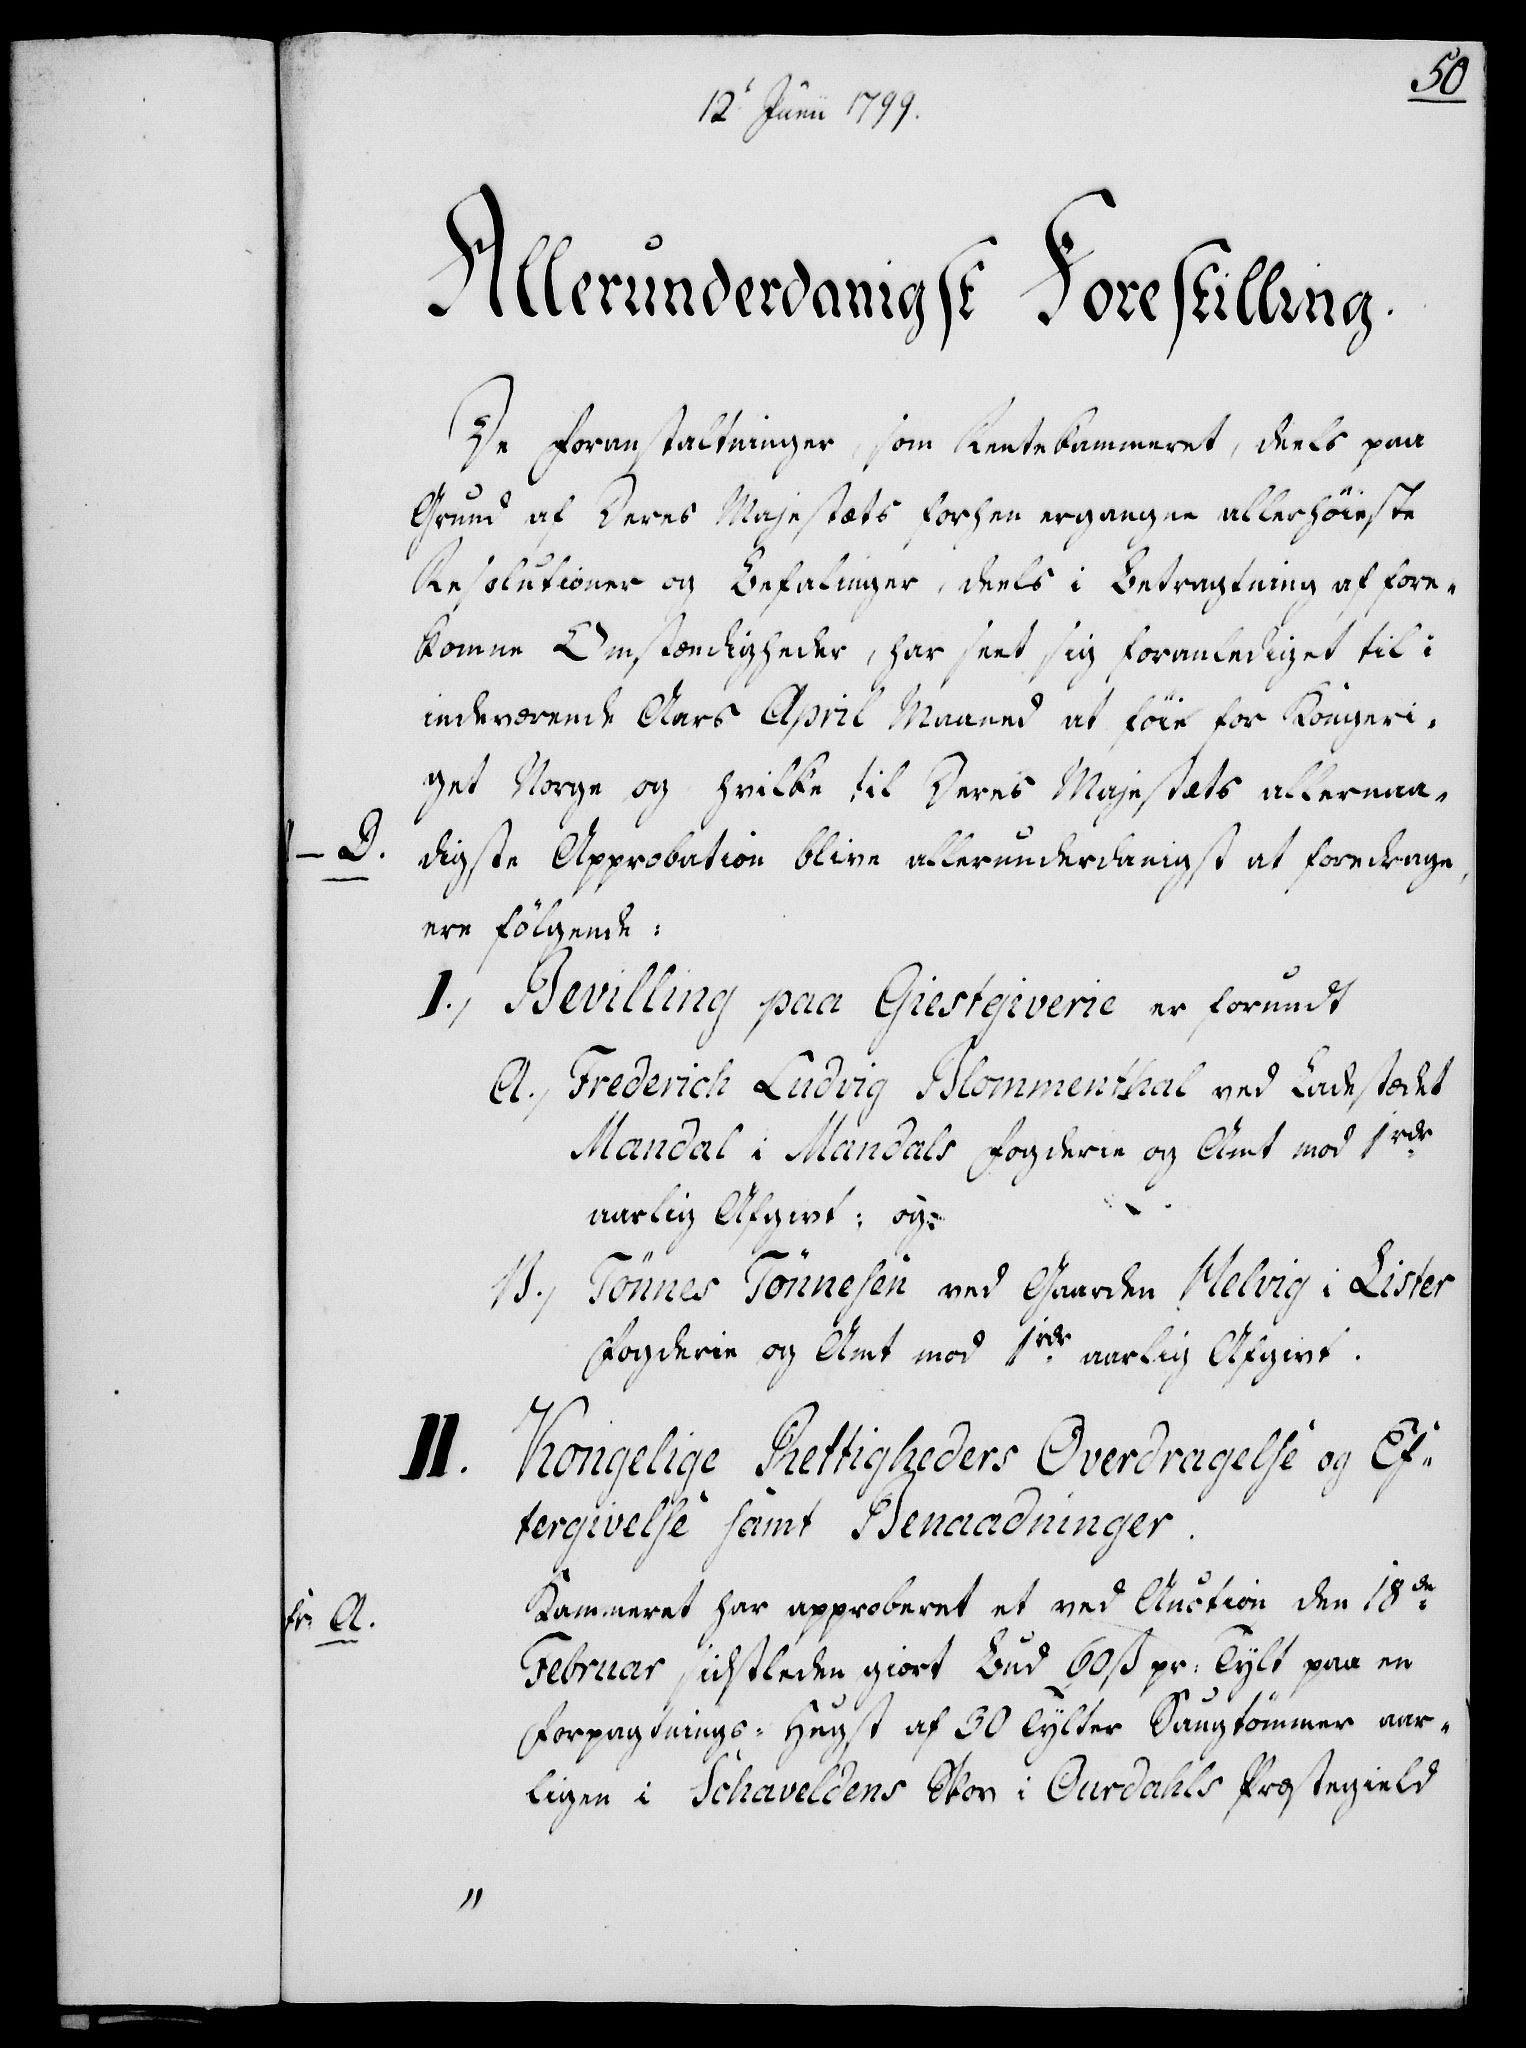 50
12t Junii 1799.
Allerunderdanigst Forestilling.
De Foranstaltninger, som Rentekammeret, deels paa
Grund af Deres Majestæts forhen ergangne allerhöieste
Resolutioner og Befalinger, deels i Betragtning af fore-
komne Omstændigheder, har seet sig foranlediget til i
indeværende Aars April Maaned at föie for Kongeri-
get Norge og hvilke til Deres Majestæts allernaa-
– D. digste Approbation blive allerunderdanigst at foredrage,
ere fölgende:
I., Bevilling paa Giestgiverie er forundt
A., Frederich Ludvig Blommenthal ved Ladestædet
Mandal i Mandals Fogderie og Amt mod 1 rdr
aarlig Afgivt; og
B., Tönnes Tönnesen ved Gaarden Helvig i Lister
Fogderie og Amt mod 1 rdr aarlig Afgivt.
II. Kongelige Rettigheders Overdragelse og Ef-
tergivelse samt Benaadninger.
A. Kammeret har approberet et ved Auction den 18de
Februar sidstleden giort Bud 60 ß pr: Tylt paa en
Forpagtnings-Hugst af 30 Tylter Saugtömmer aar-
ligen i Schaveldens Skov i Ourdahls Præstegield
"